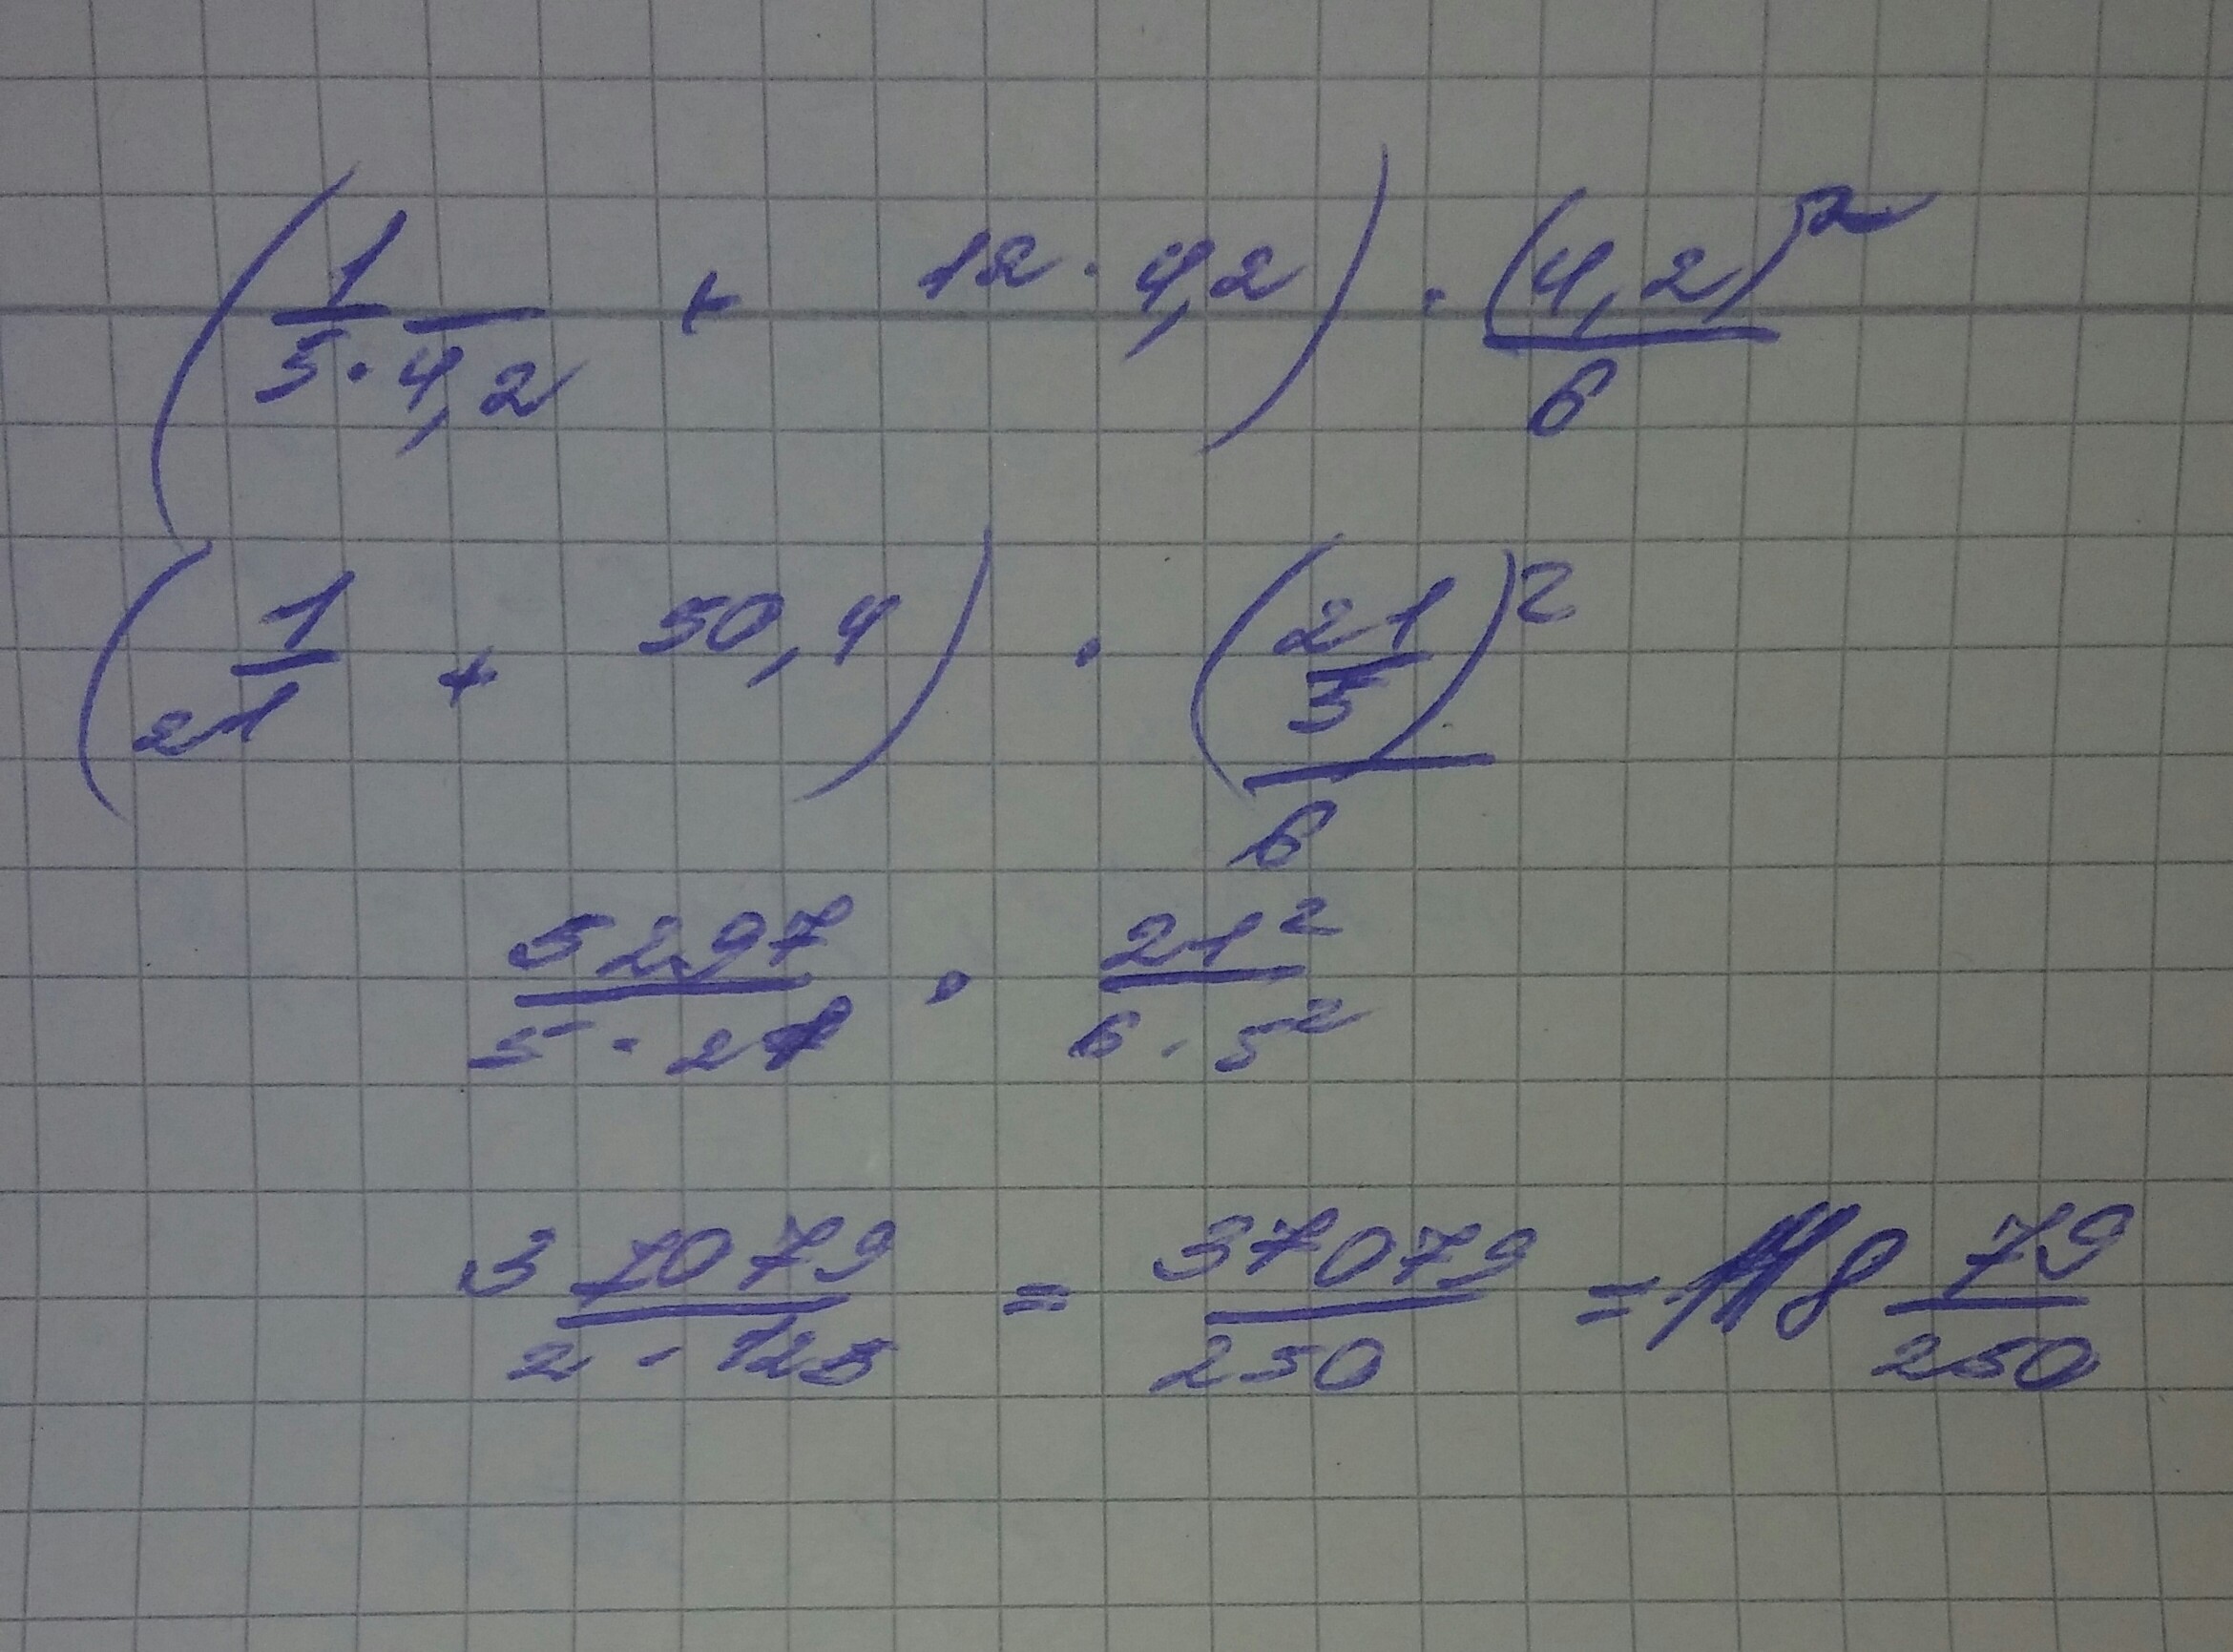 (1/5·4,2 + 12·4,2) · (4,2)²/6
(1/21 + 50,4) · (21/5)²/6
5297/5·21 · 21²/6·5²
37079/2·125 = 37079/250 = 148 79/250